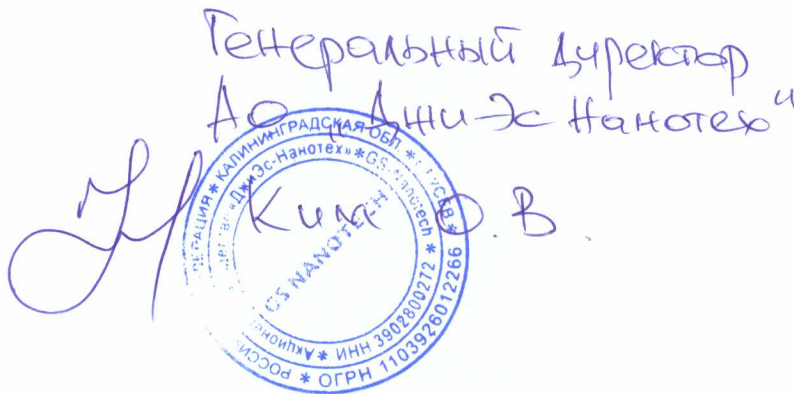 Генеральный директор
АО "Джи-Эс Нанотех"
Ким О.В.
РОССИ ЕРАЦИЯ * КАЛИНИНГРАДСКАЯ ОБЛ. * Г. ГУСЕВ * ОГРН 1103926012266 *
Акционе «ДжиЭс-Нанотех» * GS Nanotech * ИНН 3902800272 *
GS NANOTECH